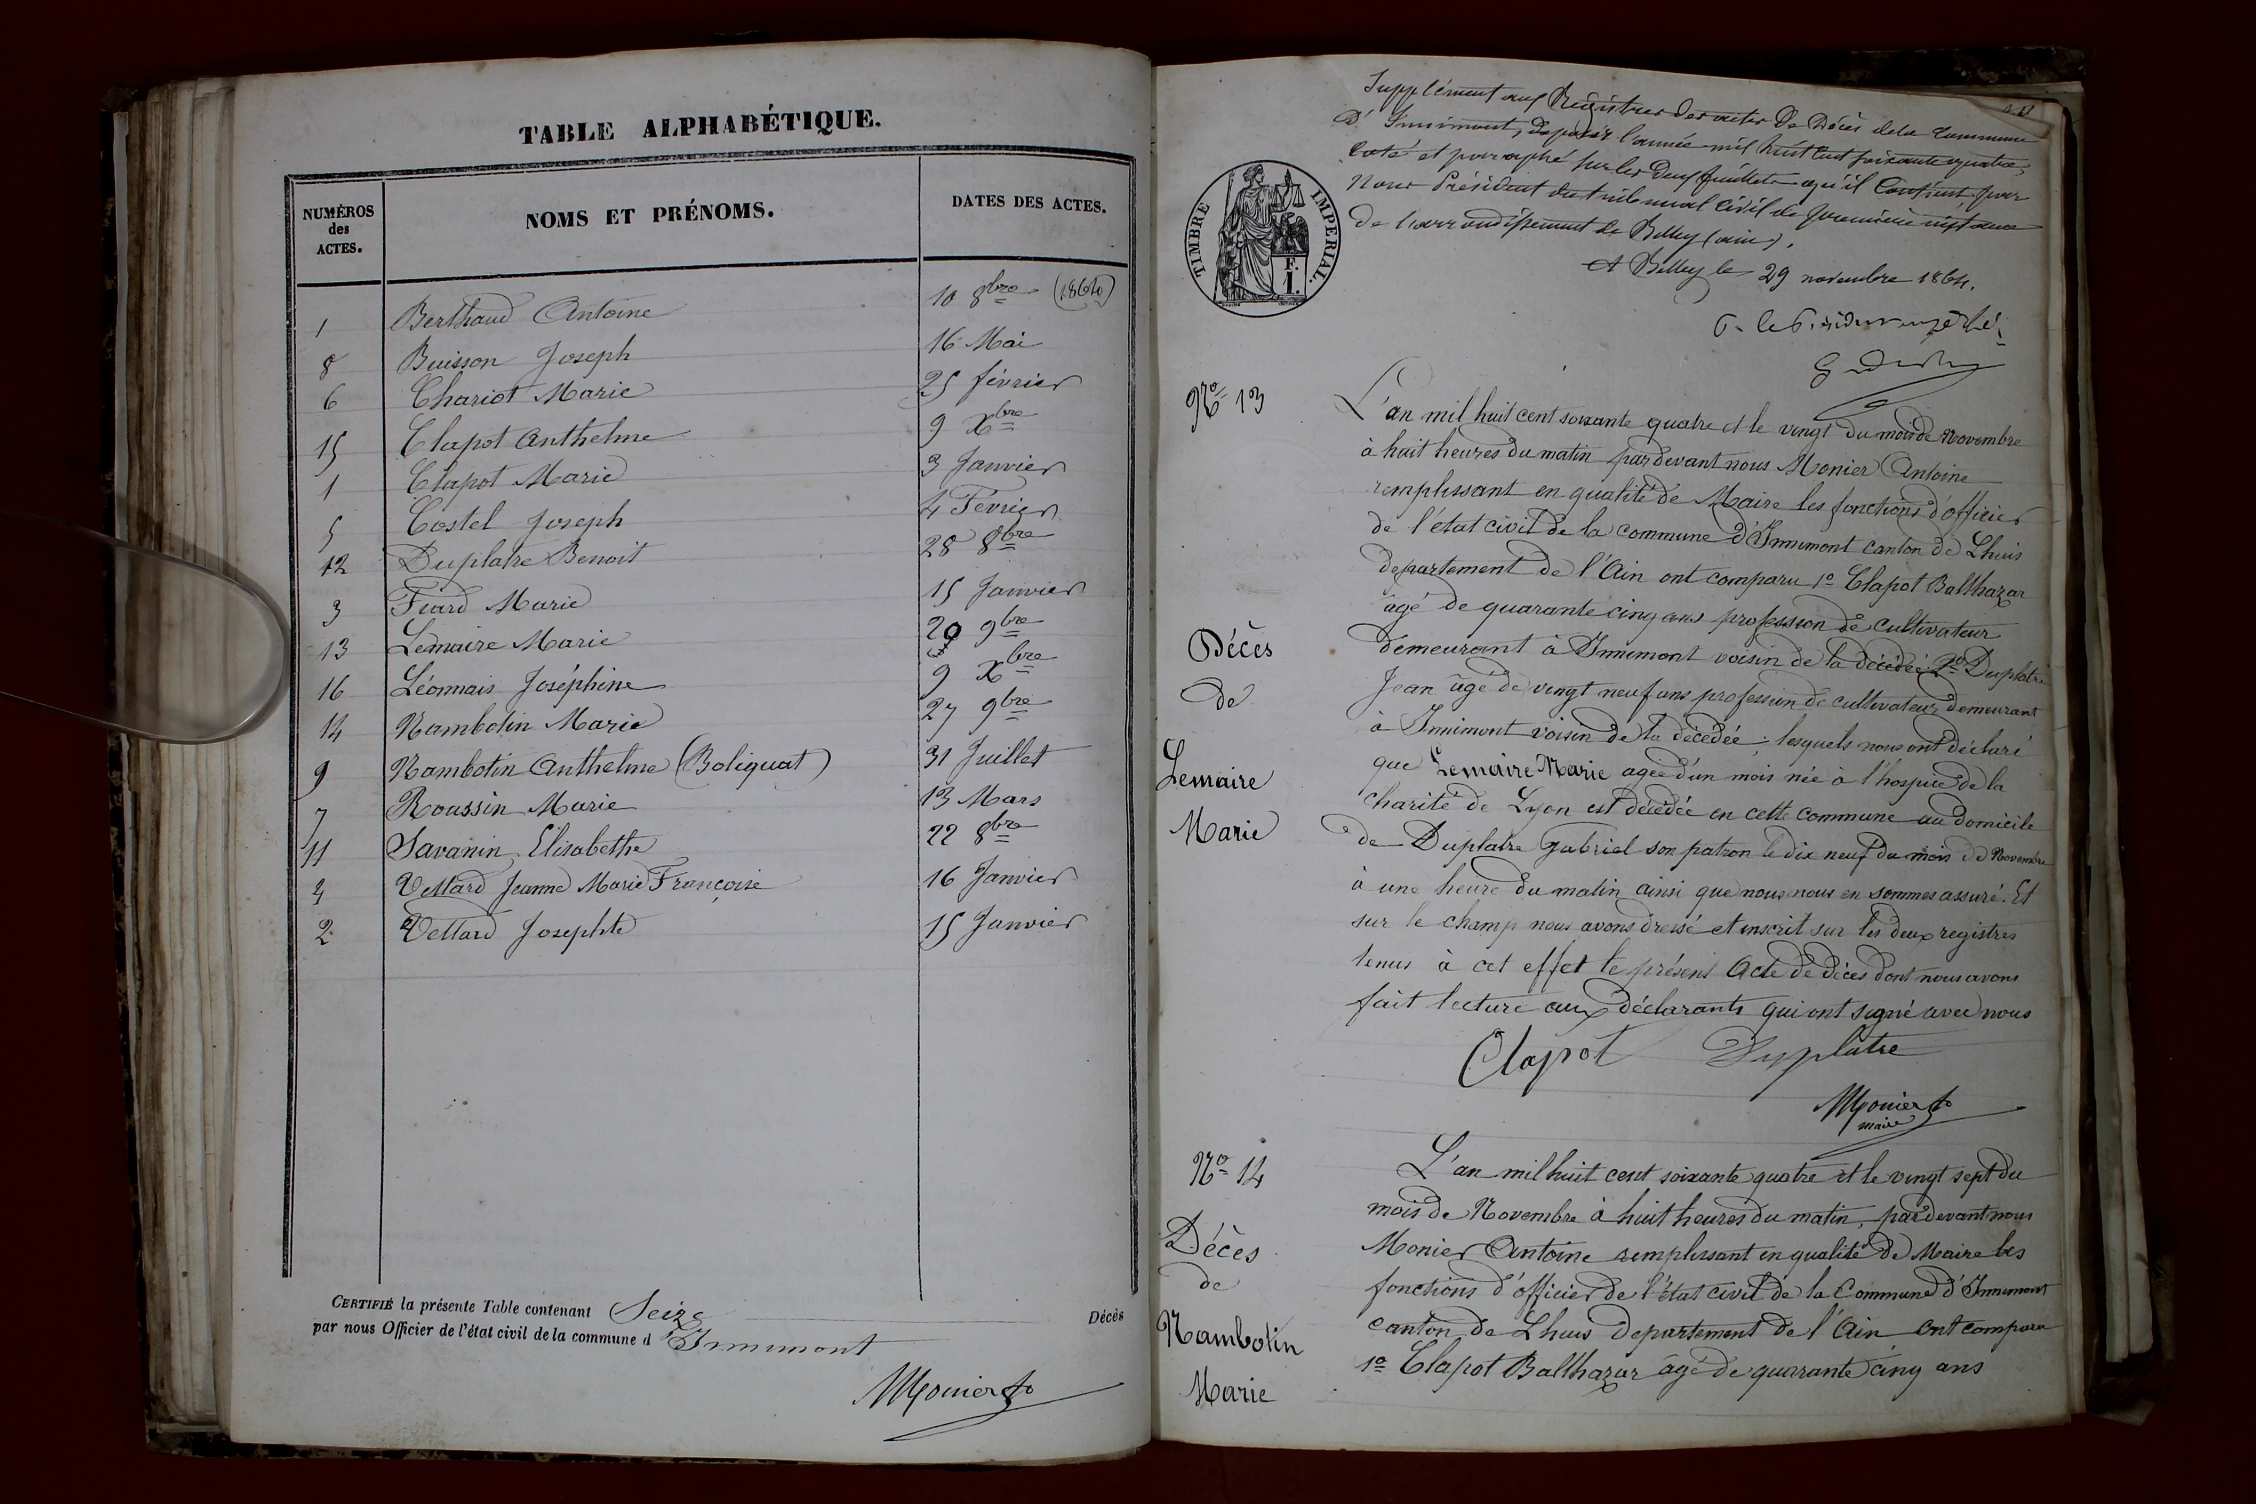 TABLE ALPHABÉTIQUE.
NUMÉROS des ACTES. NOMS ET PRÉNOMS. DATES DES ACTES.
1 Berthaud Antoine 10 8bre (1864)
8 Buisson Joseph 16 Mai
6 Chariot Marie 25 février
15 Clapot Anthelme 9 Xbre
1 Clapot Marie 3 Janvier
5 Costel Joseph 4 Février
12 Duplatre Benoit 28 8bre
3 Fiard Marie 15 Janvier
13 Lemaire Marie 20 9bre
16 Léonnais Joséphine 9 Xbre
14 Nambotin Marie 27 9bre
9 Nambotin Anthelme (Boliquat) 31 Juillet
7 Roussin Marie 13 Mars
11 Savanin Elisabethe 22 8bre
4 Vettard Jeanne Marie Françoise 16 Janvier
2 Vettard Josephte 15 Janvier
CERTIFIÉ la présente Table contenant Seize Décès
par nous Officier de l'état civil de la commune d'Innimont
Monier
TIMBRE IMPERIAL.
1 F.
Supplément aux Registres des actes de Décès de la commune
d'Innimont, depuis l'année mil huit cent soixante quatre,
coté et paraphé sur les deux feuillets qu'il contient, par
Nous Président du tribunal civil de première instance
de l'arrondissement de Belley (ain).
A Belley le 29 novembre 1864.
No 13
L'an mil huit cent soixante quatre et le vingt du mois de Novembre
à huit heures du matin pardevant nous Monier Antoine
remplissant en qualité de Maire les fonctions d'officier
de l'état civil de la commune d'Innimont canton de Lhuis
departement de l'Ain ont comparu 1o Clapot Balthazar
âgé de quarante cinq ans profession de cultivateur
Décès
de
Lemaire
Marie
demeurant à Innimont voisin de la décédée 2o Duplatre
Jean âgé de vingt neuf ans profession de cultivateur demeurant
à Innimont voisin de la décédée; lesquels nous ont déclaré
que Lemaire Marie agée d'un mois née à l'hospice de la
charité de Lyon est décédée en cette commune au domicile
de Duplatre Gabriel son patron le dix neuf du mois de Novembre
à une heure du matin ainsi que nous nous en sommes assuré. Et
sur le champ nous avons dressé et inscrit sur les deux registres
tenus à cet effet le présent Acte de déces dont nous avons
fait lecture aux déclarants qui ont signé avec nous
Clapot Duplatre
Monier
maire
No 14
Décès
de
Nambotin
Marie
L'an mil huit cent soixante quatre et le vingt sept du
mois de Novembre à huit heures du matin, pardevant nous
Monier Antoine remplissant en qualité de Maire les
fonctions d'officier de l'état civil de la Commune d'Innimont
canton de Lhuis departement de l'Ain ont comparu
1o Clapot Balthazar âgé de quarante cinq ans